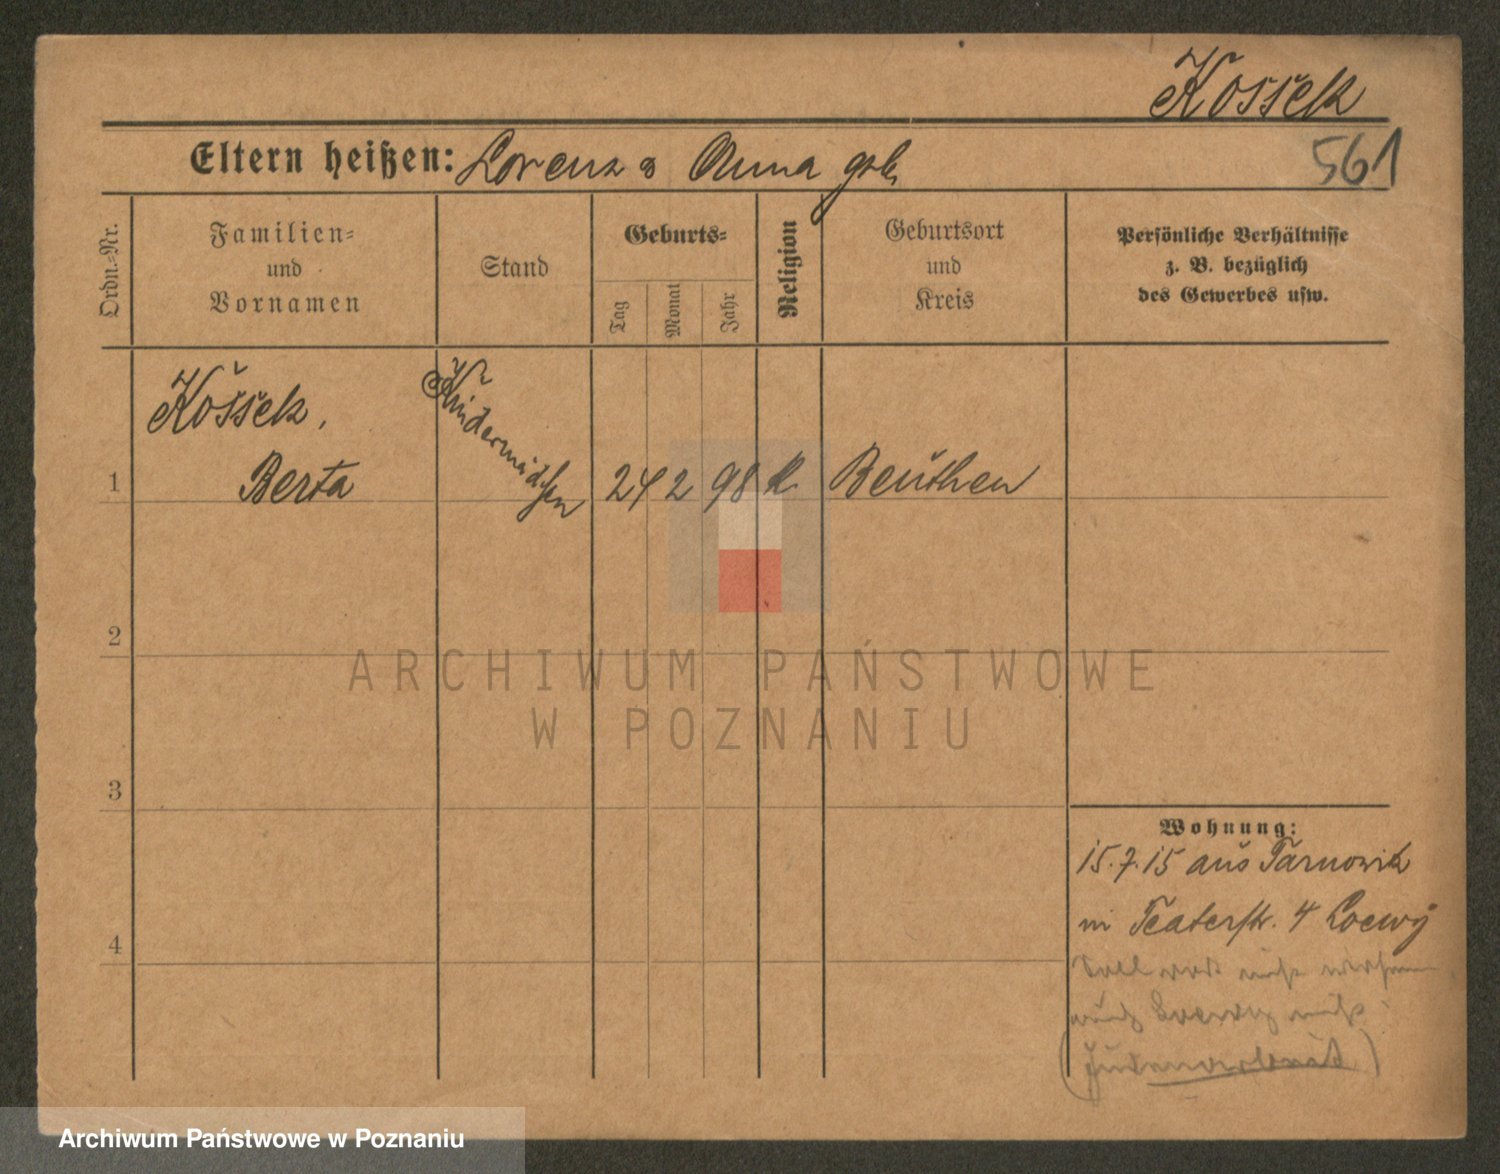 Kossek
561
Eltern heißen: Lorenz & Anna geb.
Ordn.-Nr.
Familien- und Vornamen
Stand
Geburts-
Tag
Monat
Jahr
Religion
Geburtsort und Kreis
Persönliche Verhältnisse z. B. bezüglich des Gewerbes usw.
1
Kossek,
Berta
Kindermädchen
24 2 98 K. Beuthen
2
3
4
Wohnung:
15.7.15 aus Tarnowitz
in Teaterstr. 4 Loewy
Soll
Loewy nicht
ARCHIWUM PAŃSTWOWE
W POZNANIU
Archiwum Państwowe w Poznaniu